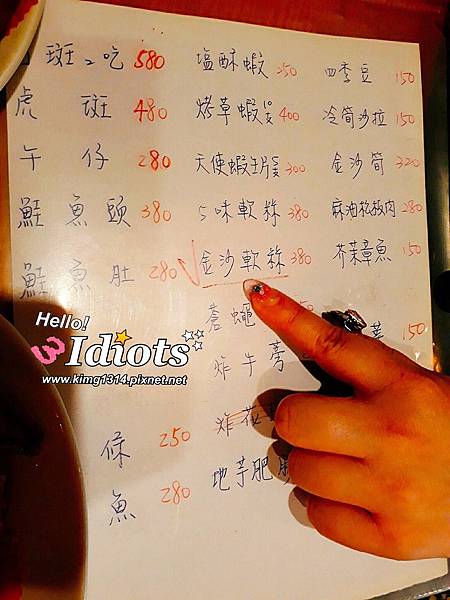 斑二吃 580
虎斑 480
午仔 280
鮭魚頭 380
鮭魚肚 280
條 250
魚 280
塩酥蝦 250
烤草蝦 400
天使蝦 300
5味軟絲 380
金沙軟絲 380
蒼蠅
炸牛蒡
炸花
地芋肥腸
四季豆 150
冷筍沙拉 150
金沙筍 320
麻油松板肉 280
芥茉章魚 150
150
Hello!
3 Idiots
www.kimg1314.pixnet.net